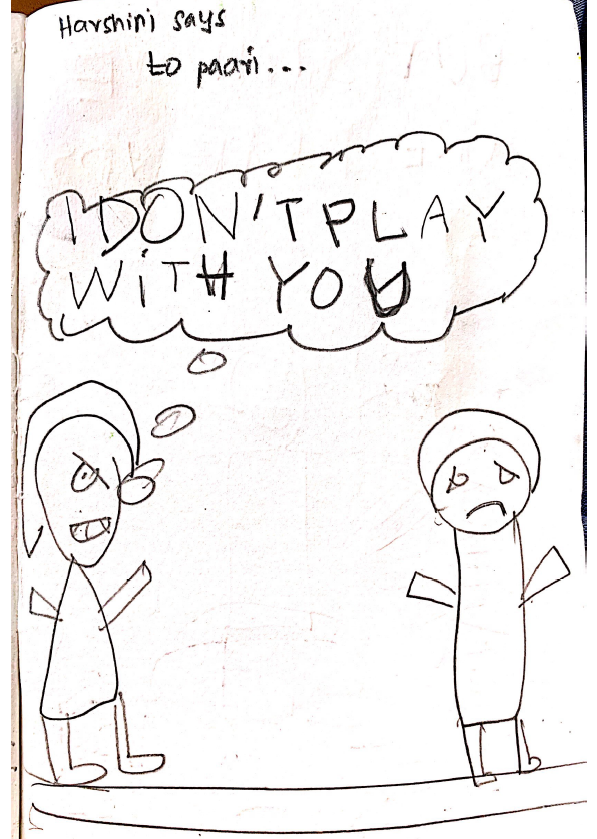 Harshini says
to paari...
I DON'T PLAY
WiTH YOU